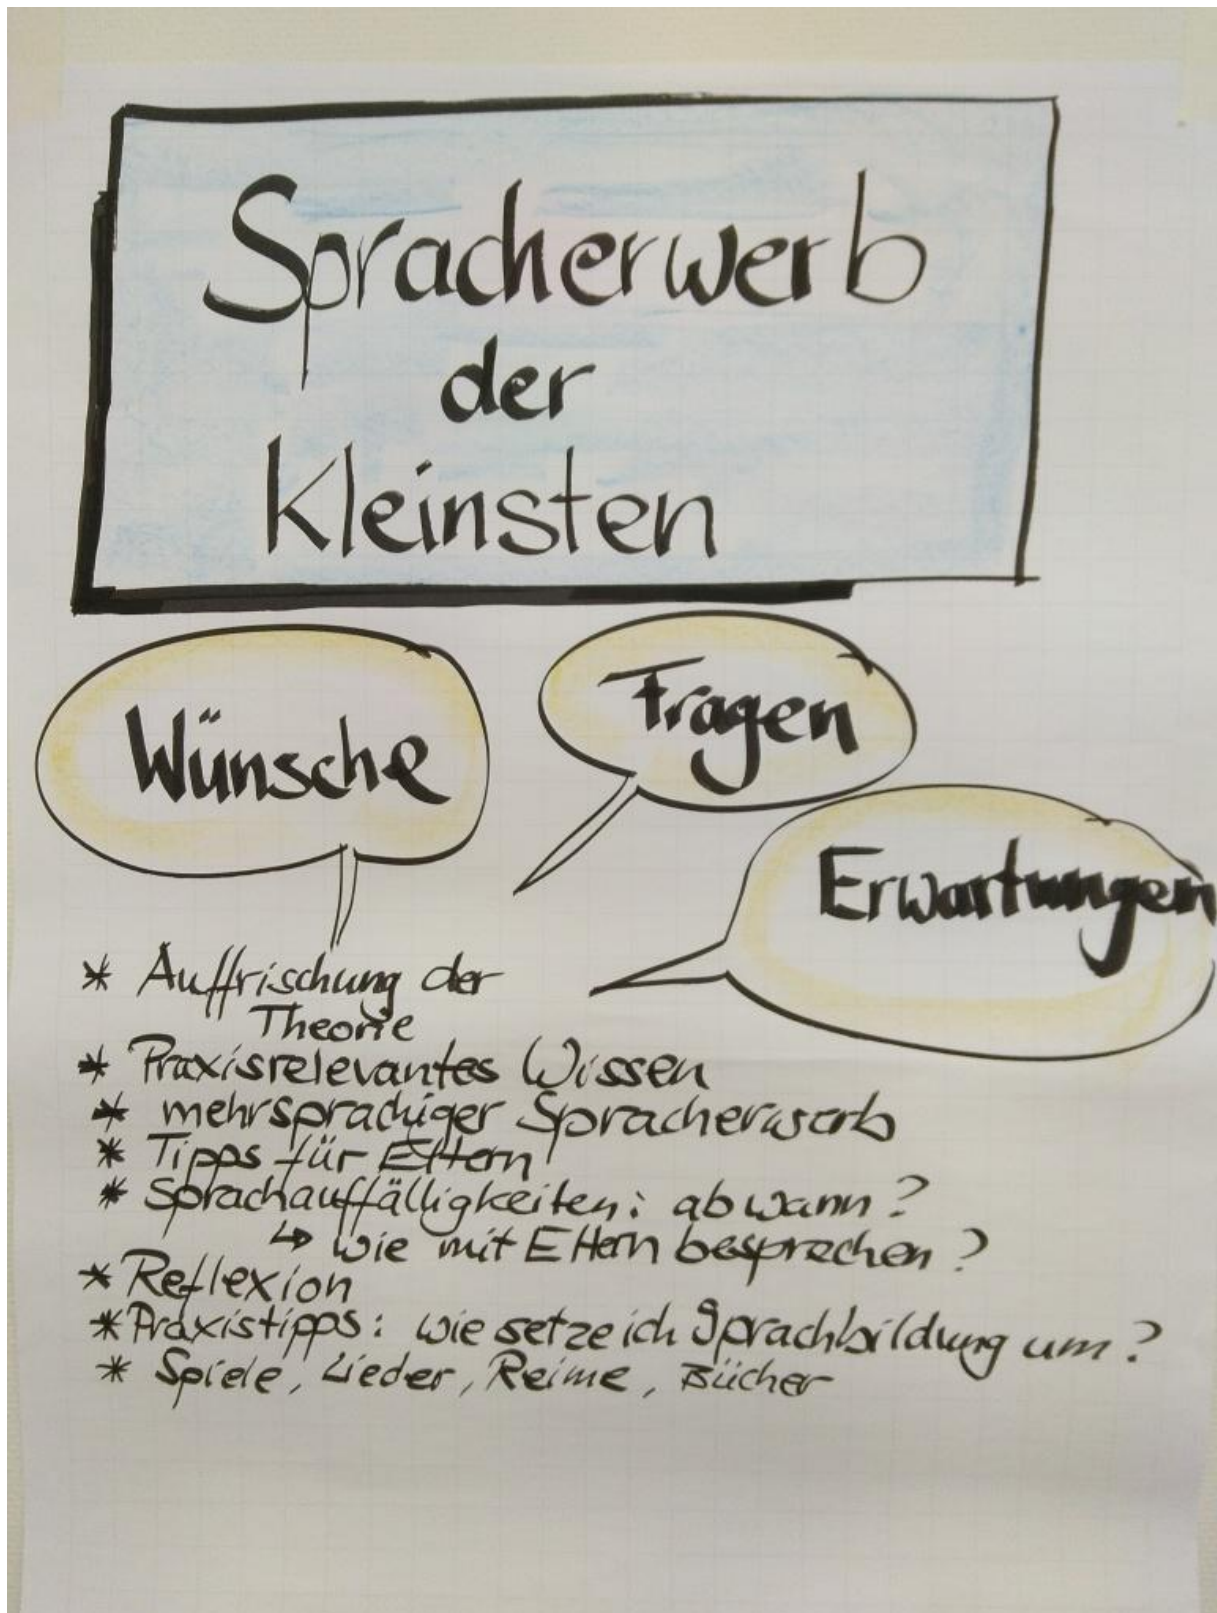 Spracherwerb
der
Kleinsten
Wünsche
Fragen
Erwartungen
* Auffrischung der
Theorie
* Praxisrelevantes Wissen
* mehrsprachiger Spracherwerb
* Tipps für Eltern
* Sprachauffälligkeiten: ab wann?
↳ wie mit Eltern besprechen?
* Reflexion
* Praxistipps: wie setze ich Sprachbildung um?
* Spiele, Lieder, Reime, Bücher